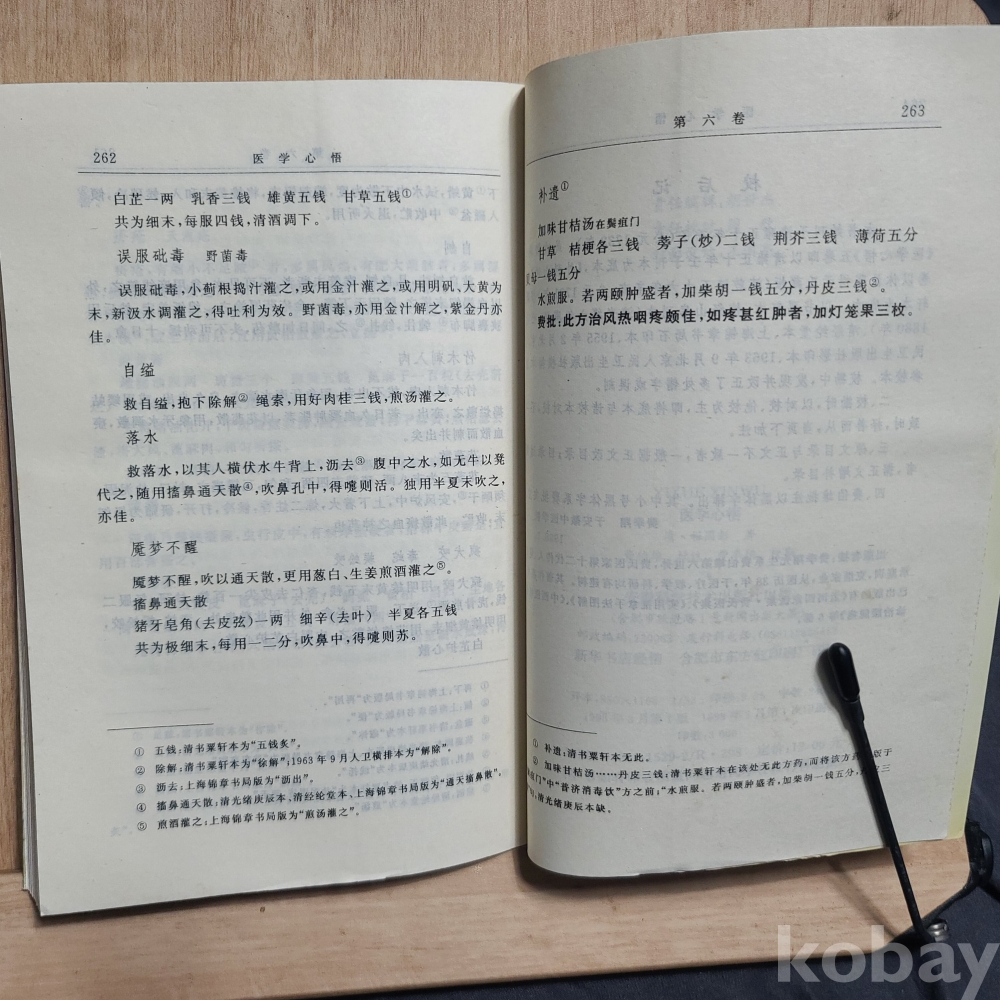 262
医学心悟
白芷一两 乳香三钱 雄黄五钱 甘草五钱①
共为细末，每服四钱，清酒调下。
误服砒毒 野菌毒
误服砒毒，小蓟根捣汁灌之，或用金汁灌之，或用明矾、大黄为
末，新汲水调灌之，得吐利为效。野菌毒，亦用金汁解之，紫金丹亦
佳。
自缢
救自缢，抱下除解② 绳索，用好肉桂三钱，煎汤灌之。
落水
救落水，以其人横伏水牛背上，沥去③ 腹中之水，如无牛以凳
代之，随用搐鼻通天散④，吹鼻孔中，得嚏则活。独用半夏末吹之，
亦佳。
魇梦不醒
魇梦不醒，吹以通天散，更用葱白、生姜煎酒灌之⑤。
搐鼻通天散
猪牙皂角(去皮弦)一两 细辛(去叶) 半夏各五钱
共为极细末，每用一二分，吹鼻中，得嚏则苏。
① 五钱：清书粟轩本为“五钱炙”。
② 除解：清书粟轩本为“徐解”；1963年9月人卫横排本为“解除”。
③ 沥去：上海锦章书局版为“沥出”。
④ 搐鼻通天散：清光绪庚辰本、清经纶堂本、上海锦章书局版为“通天搐鼻散”。
⑤ 煎酒灌之：上海锦章书局版为“煎汤灌之”。
第六卷
263
补遗①
加味甘桔汤在鬓疽门
甘草 桔梗各三钱 蒡子(炒)二钱 荆芥三钱 薄荷五分
母一钱五分
水煎服。若两颐肿盛者，加柴胡一钱五分，丹皮三钱②。
费批：此方治风热咽疼颇佳，如疼甚红肿者，加灯笼果三枚。
① 补遗：清书粟轩本无此。
② 加味甘桔汤……丹皮三钱：清书粟轩本在该处无此方药，而将该方药版于
疽门”中“普济消毒饮”方之前；“水煎服。若两颐肿盛者，加柴胡一钱五分，丹皮三
清光绪庚辰本缺。
kobay